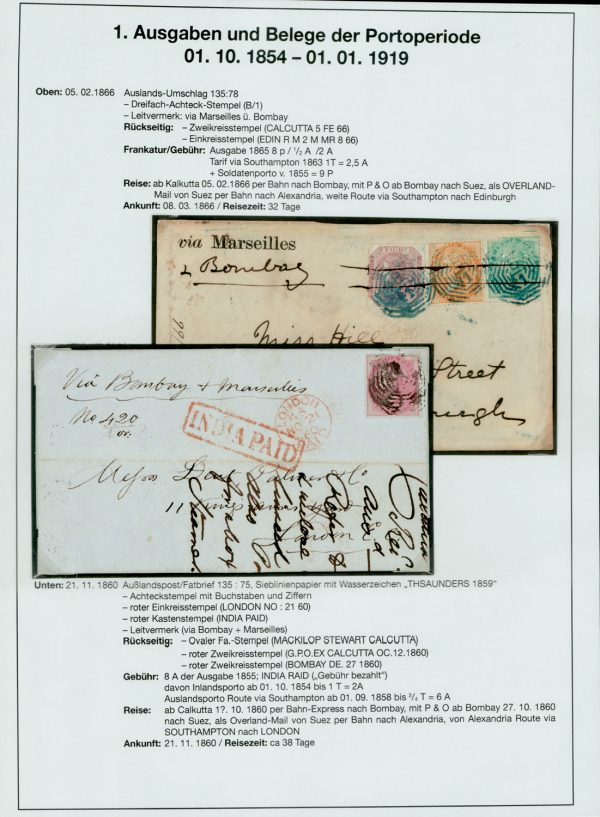 1. Ausgaben und Belege der Portoperiode
01. 10. 1854 – 01. 01. 1919
Oben: 05. 02.1866 Auslands-Umschlag 135:78
– Dreifach-Achteck-Stempel (B/1)
– Leitvermerk: via Marseilles ü. Bombay
Rückseitig: – Zweikreisstempel (CALCUTTA 5 FE 66)
– Einkreisstempel (EDIN R M 2 M MR 8 66)
Frankatur/Gebühr: Ausgabe 1865 8 p / 1/2 A /2 A
Tarif via Southampton 1863 1T = 2,5 A
+ Soldatenporto v. 1855 = 9 P
Reise: ab Kalkutta 05. 02.1866 per Bahn nach Bombay, mit P & O ab Bombay nach Suez, als OVERLAND-
Mail von Suez per Bahn nach Alexandria, weite Route via Southampton nach Edinburgh
Ankunft: 08. 03. 1866 / Reisezeit: 32 Tage
via Marseilles
& Bombay
Miss Hill
Street
Via Bombay & Marseilles
No 420
INDIA PAID
LONDON
PAID
Messrs
& Co
11
London
Unten: 21. 11. 1860 Außlandspost/Fatbrief 135 : 75, Sieblinienpapier mit Wasserzeichen „THSAUNDERS 1859“
– Achteckstempel mit Buchstaben und Ziffern
– roter Einkreisstempel (LONDON NO : 21 60)
– roter Kastenstempel (INDIA PAID)
– Leitvermerk (via Bombay + Marseilles)
Rückseitig: – Ovaler Fa.-Stempel (MACKILOP STEWART CALCUTTA)
– roter Zweikreisstempel (G.P.O.EX CALCUTTA OC.12.1860)
– roter Zweikreisstempel (BOMBAY DE. 27 1860)
Gebühr: 8 A der Ausgabe 1855; INDIA RAID („Gebühr bezahlt“)
davon Inlandsporto ab 01. 10. 1854 bis 1 T = 2A
Auslandsporto Route via Southampton ab 01. 09. 1858 bis 3/4 T = 6 A
Reise: ab Calkutta 1?. 10. 1860 per Bahn-Express nach Bombay, mit P & O ab Bombay 27. 10. 1860
nach Suez, als Overland-Mail von Suez per Bahn nach Alexandria, von Alexandria Route via
SOUTHAMPTON nach LONDON
Ankunft: 21. 11. 1860 / Reisezeit: ca 38 Tage